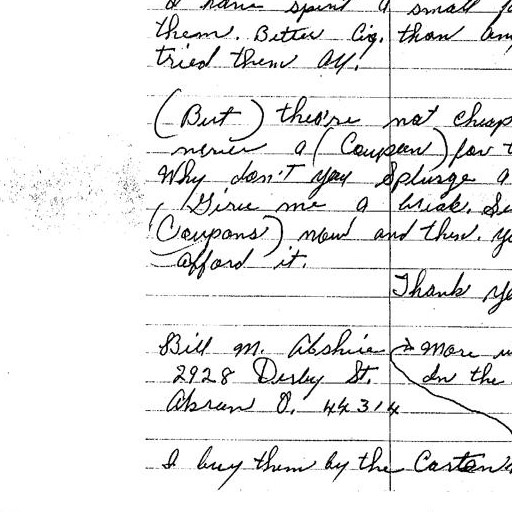 I have spent a small fo
them. Better Cig. than any
tried them All!
(But) they're not cheap
never a (Coupon) for t
Why don't you Splurge a
Give me a break. Se
(Coupons) now and then. Yo
afford it.
Thank Yo
Bill M. Abshire → More
2928 Derby St. On the
Akron O. 44314
I buy them by the Carton